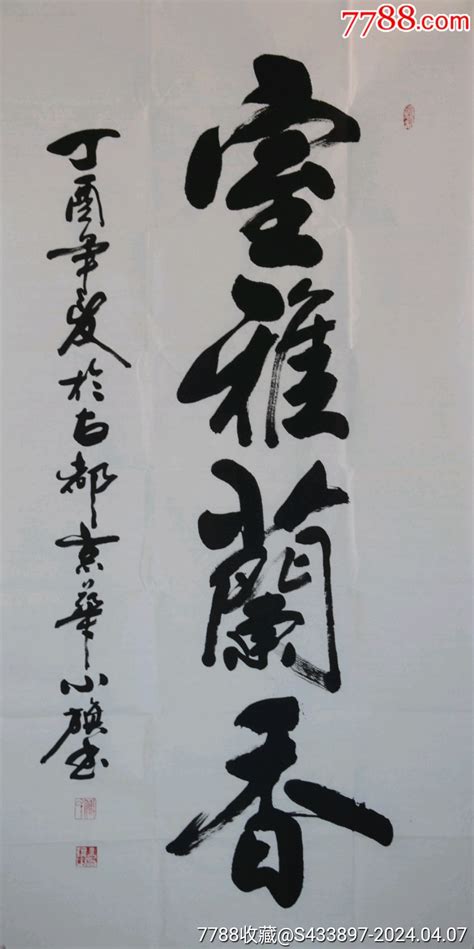 7788.com
室雅蘭香
丁酉年夏於古都京華小旗书
7788收藏@S433897-2024.04.07